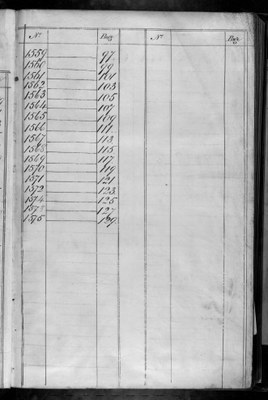 No. Pag. No. Pag.
1559 97
1560 99
1561 101
1562 103
1563 105
1564 107
1565 109
1566 111
1567 113
1568 115
1569 117
1570 119
1571 121
1572 123
1574 125
127
1576 129